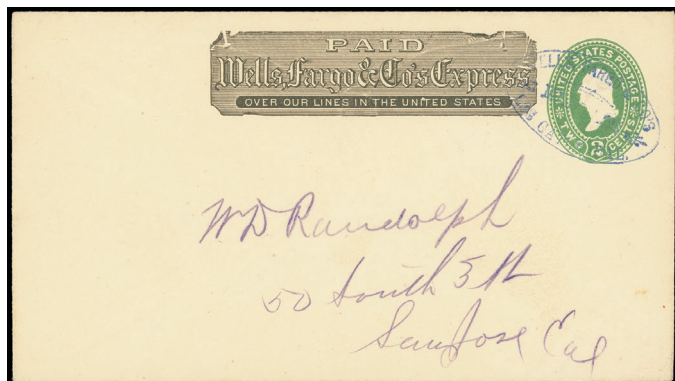 PAID
Wells, Fargo & Co's Express
OVER OUR LINES IN THE UNITED STATES
UNITED STATES POSTAGE
TWO 2 CENTS
WD Randolph
50 South 5th
San Jose Cal